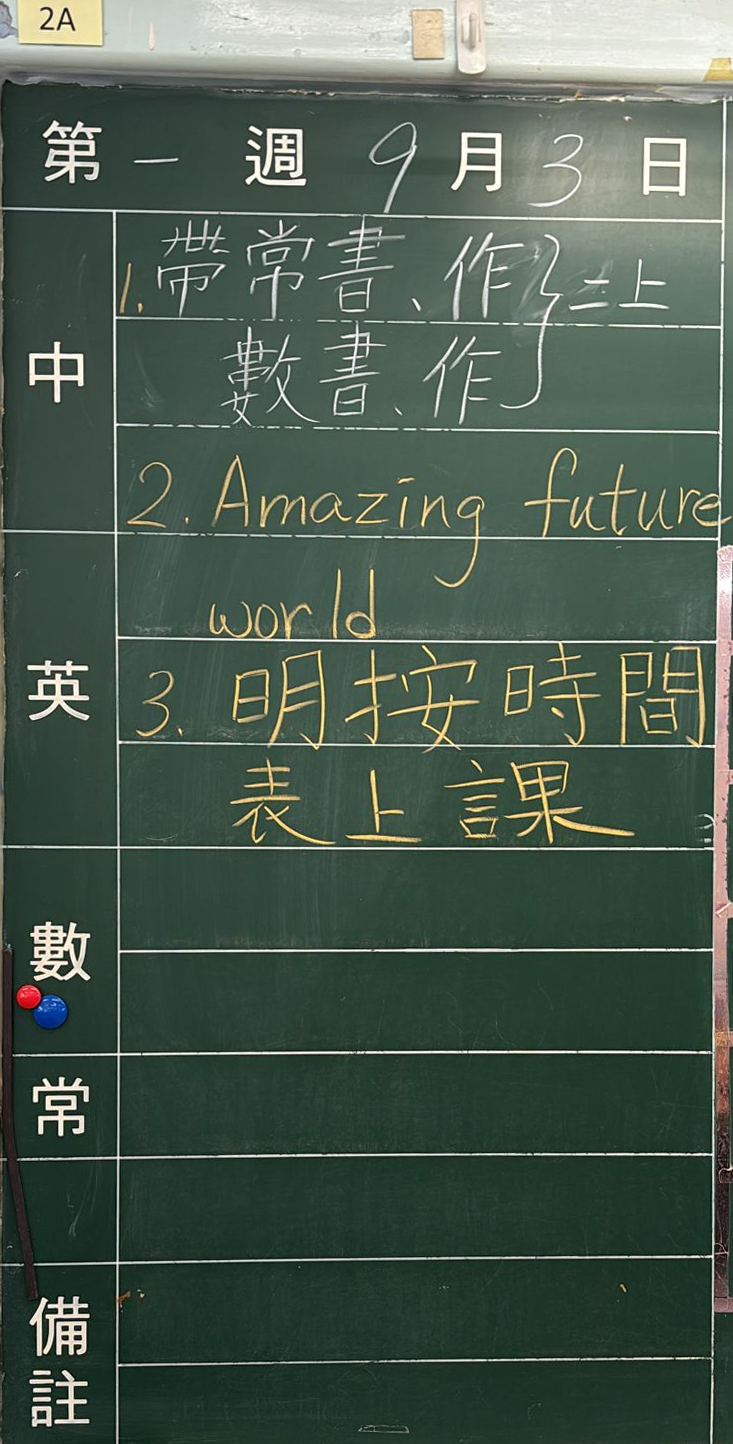 2A
第一週9月3日
中
1.帶常書、作}二上
數書、作
2. Amazing future
world
英
3. 明按時間
表上課
數
常
備註